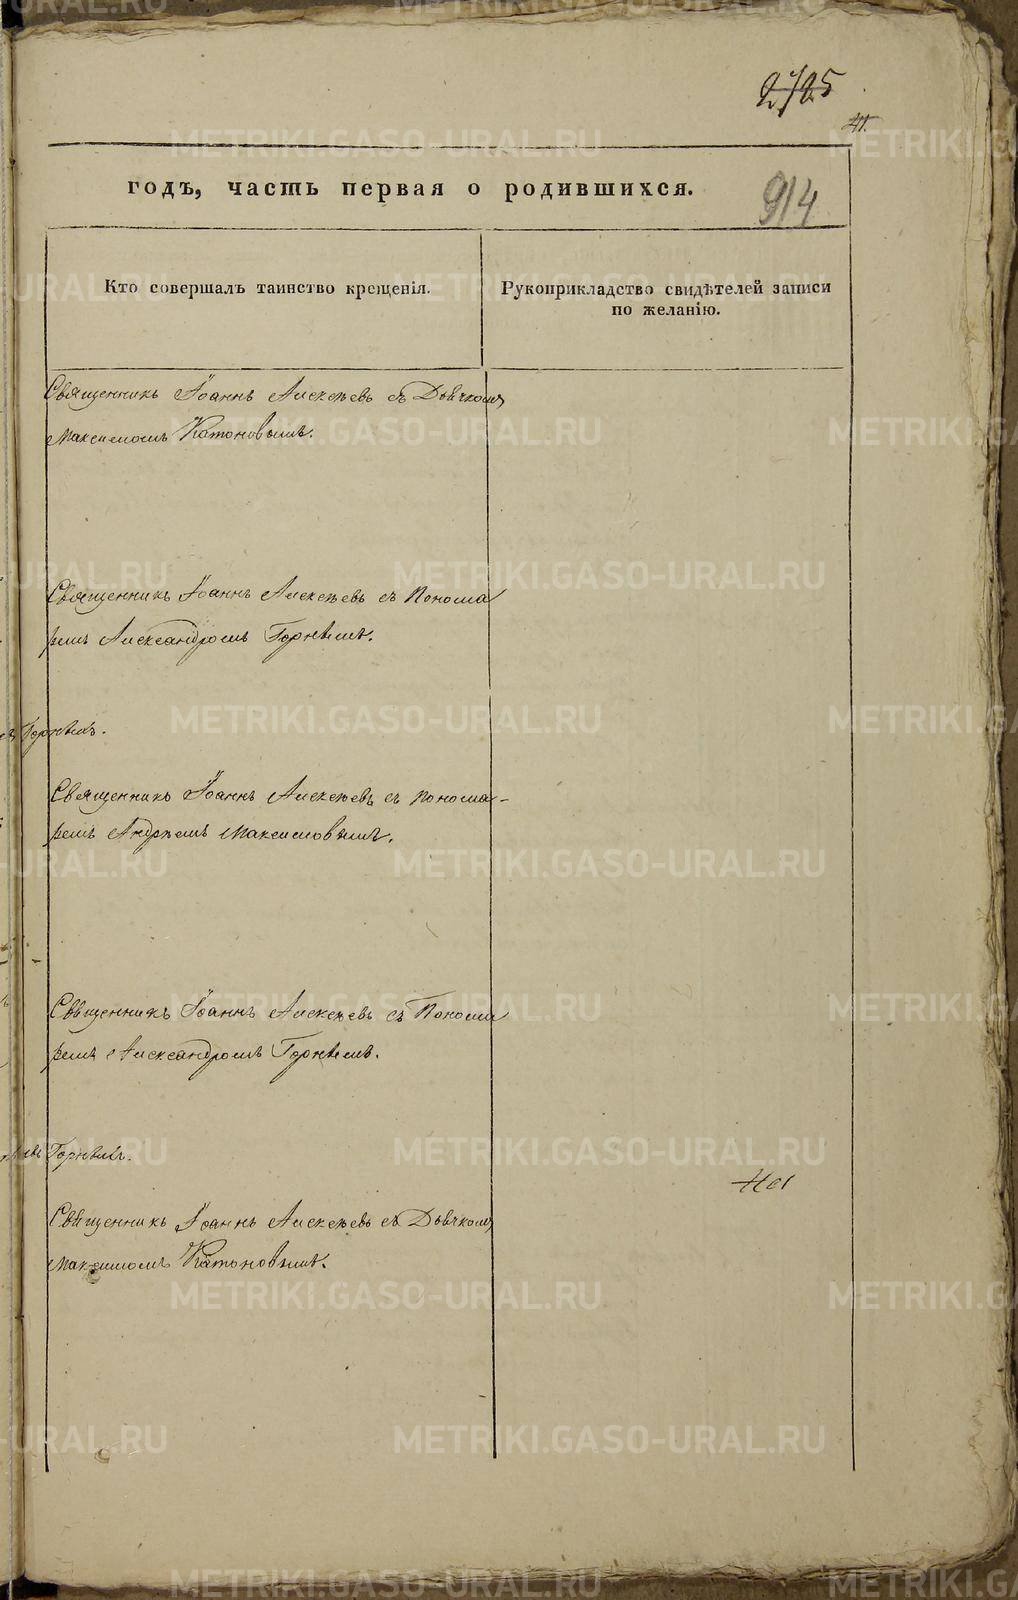 41.
годъ, часть первая о родившихся.
914
Кто совершалъ таинство крещенія.
Рукоприкладство свидѣтелей записи
по желанію.
Священникъ Іоаннъ Алексѣевъ съ Дьячкомъ
Максимомъ Катоновымъ.
Священникъ Іоаннъ Алексѣевъ съ Понома
ремъ Александромъ Горнымъ.
Горныхъ.
Священникъ Іоаннъ Алексѣевъ съ Понома-
ремъ Андрѣемъ Максимовымъ.
Священникъ Іоаннъ Алексѣевъ съ Понома
ремъ Александромъ Горнымъ.
Горныхъ.
Священникъ Іоаннъ Алексѣевъ съ Дьячкомъ
Максимомъ Катоновымъ.
METRIKI.GASO-URAL.RU